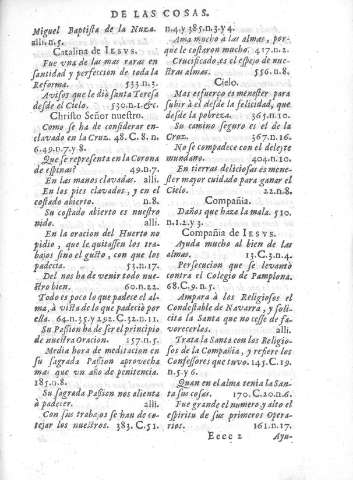 DE LAS COSAS.
Miguel Baptista de la Nuza.
alli.n.5.
Catalina de IESVS.
Fue vna de las mas raras en
santidad y perfeccion de toda la
Reforma. 533.n.3.
Avisos que le dio Santa Teresa
desde el Cielo. 530.n.1.&c.
Christo Señor nuestro.
Como se ha de considerar en-
clavado en la Cruz. 48.C.8.n.
6.49.n.7.y 8.
Que se representa en la Corona
de espinas? 49.n.7.
En las manos clavadas. alli.
En los pies clavados, y en el
costado abierto. n.8.
Su costado abierto es nuestro
nido. alli.
En la oracion del Huerto no
pidio, que le quitassen los tra-
bajos sino el gusto, con que los
padecia. 53.n.17.
Del nos ha de venir todo nue-
stro bien. 60.n.22.
Todo es poco lo que padece el al-
ma, à vista de lo que padeciò por
ella. 64.n.35.y 292.C.32.n.11.
Su Passion ha de ser el principio
de nuestra Oracion. 157.n.5.
Media hora de meditacion en
su sagrada Passion aprovecha
mas que vn año de penitencia.
185.n.8.
Su sagrada Passion nos alienta
à padecer. alli.
Con sus trabajos se han de co-
tejar los nuestros. 383.C.51.
n.4.y 385.n.3.y 4.
Ama mucho a las almas, por-
que le costaron mucho. 417.n.2.
Crucificado, es el espejo de nue-
stras almas. 556.n.8.
Cielo.
Mas esfuerço es menester para
subir à el desde la felicidad, que
desde la pobreza. 363.n.10.
Su camino seguro es el de la
Cruz. 367.n.16.
No se compadece con el deleyte
mundano. 404.n.10.
En tierras deliciosas es mene-
ster mayor cuidado para ganar el
Cielo. 22.n.8.
Compañia.
Daños que haze la mala. 510.
n.1.2.y 3.
Compañia de IESVS.
Ayuda mucho al bien de las
almas. 13.C.3.n.4.
Persecucion que se levantò
contra el Colegio de Pamplona.
68.C.9.n.5.
Ampara à los Religiosos el
Condestable de Navarra, y soli-
cita la Santa que no cesse de fa-
vorecerlos. alli.
Trata la Santa con los Religio-
sos de la Compañia, y refiere los
Confessores que tuvo. 145.C.19.
n.5.y 6.
Quan en el alma tenia la San-
ta sus cosas. 170.C.20.n.6.
Fue grande el numero, y alto el
espiritu de sus primeros Opera-
rios. 161.n.17.
Eeee 2 Ayu-